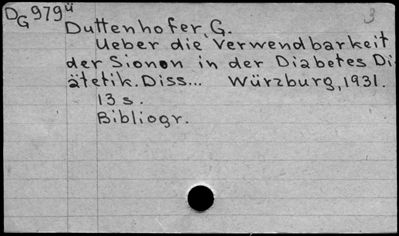 DG979u
3
Duttenhofer, G.
Ueber die Verwendbarkeit
der Sionon in der Diabetes Di
ätetik. Diss... Würzburg, 1931.
13 s.
Bibliogr.